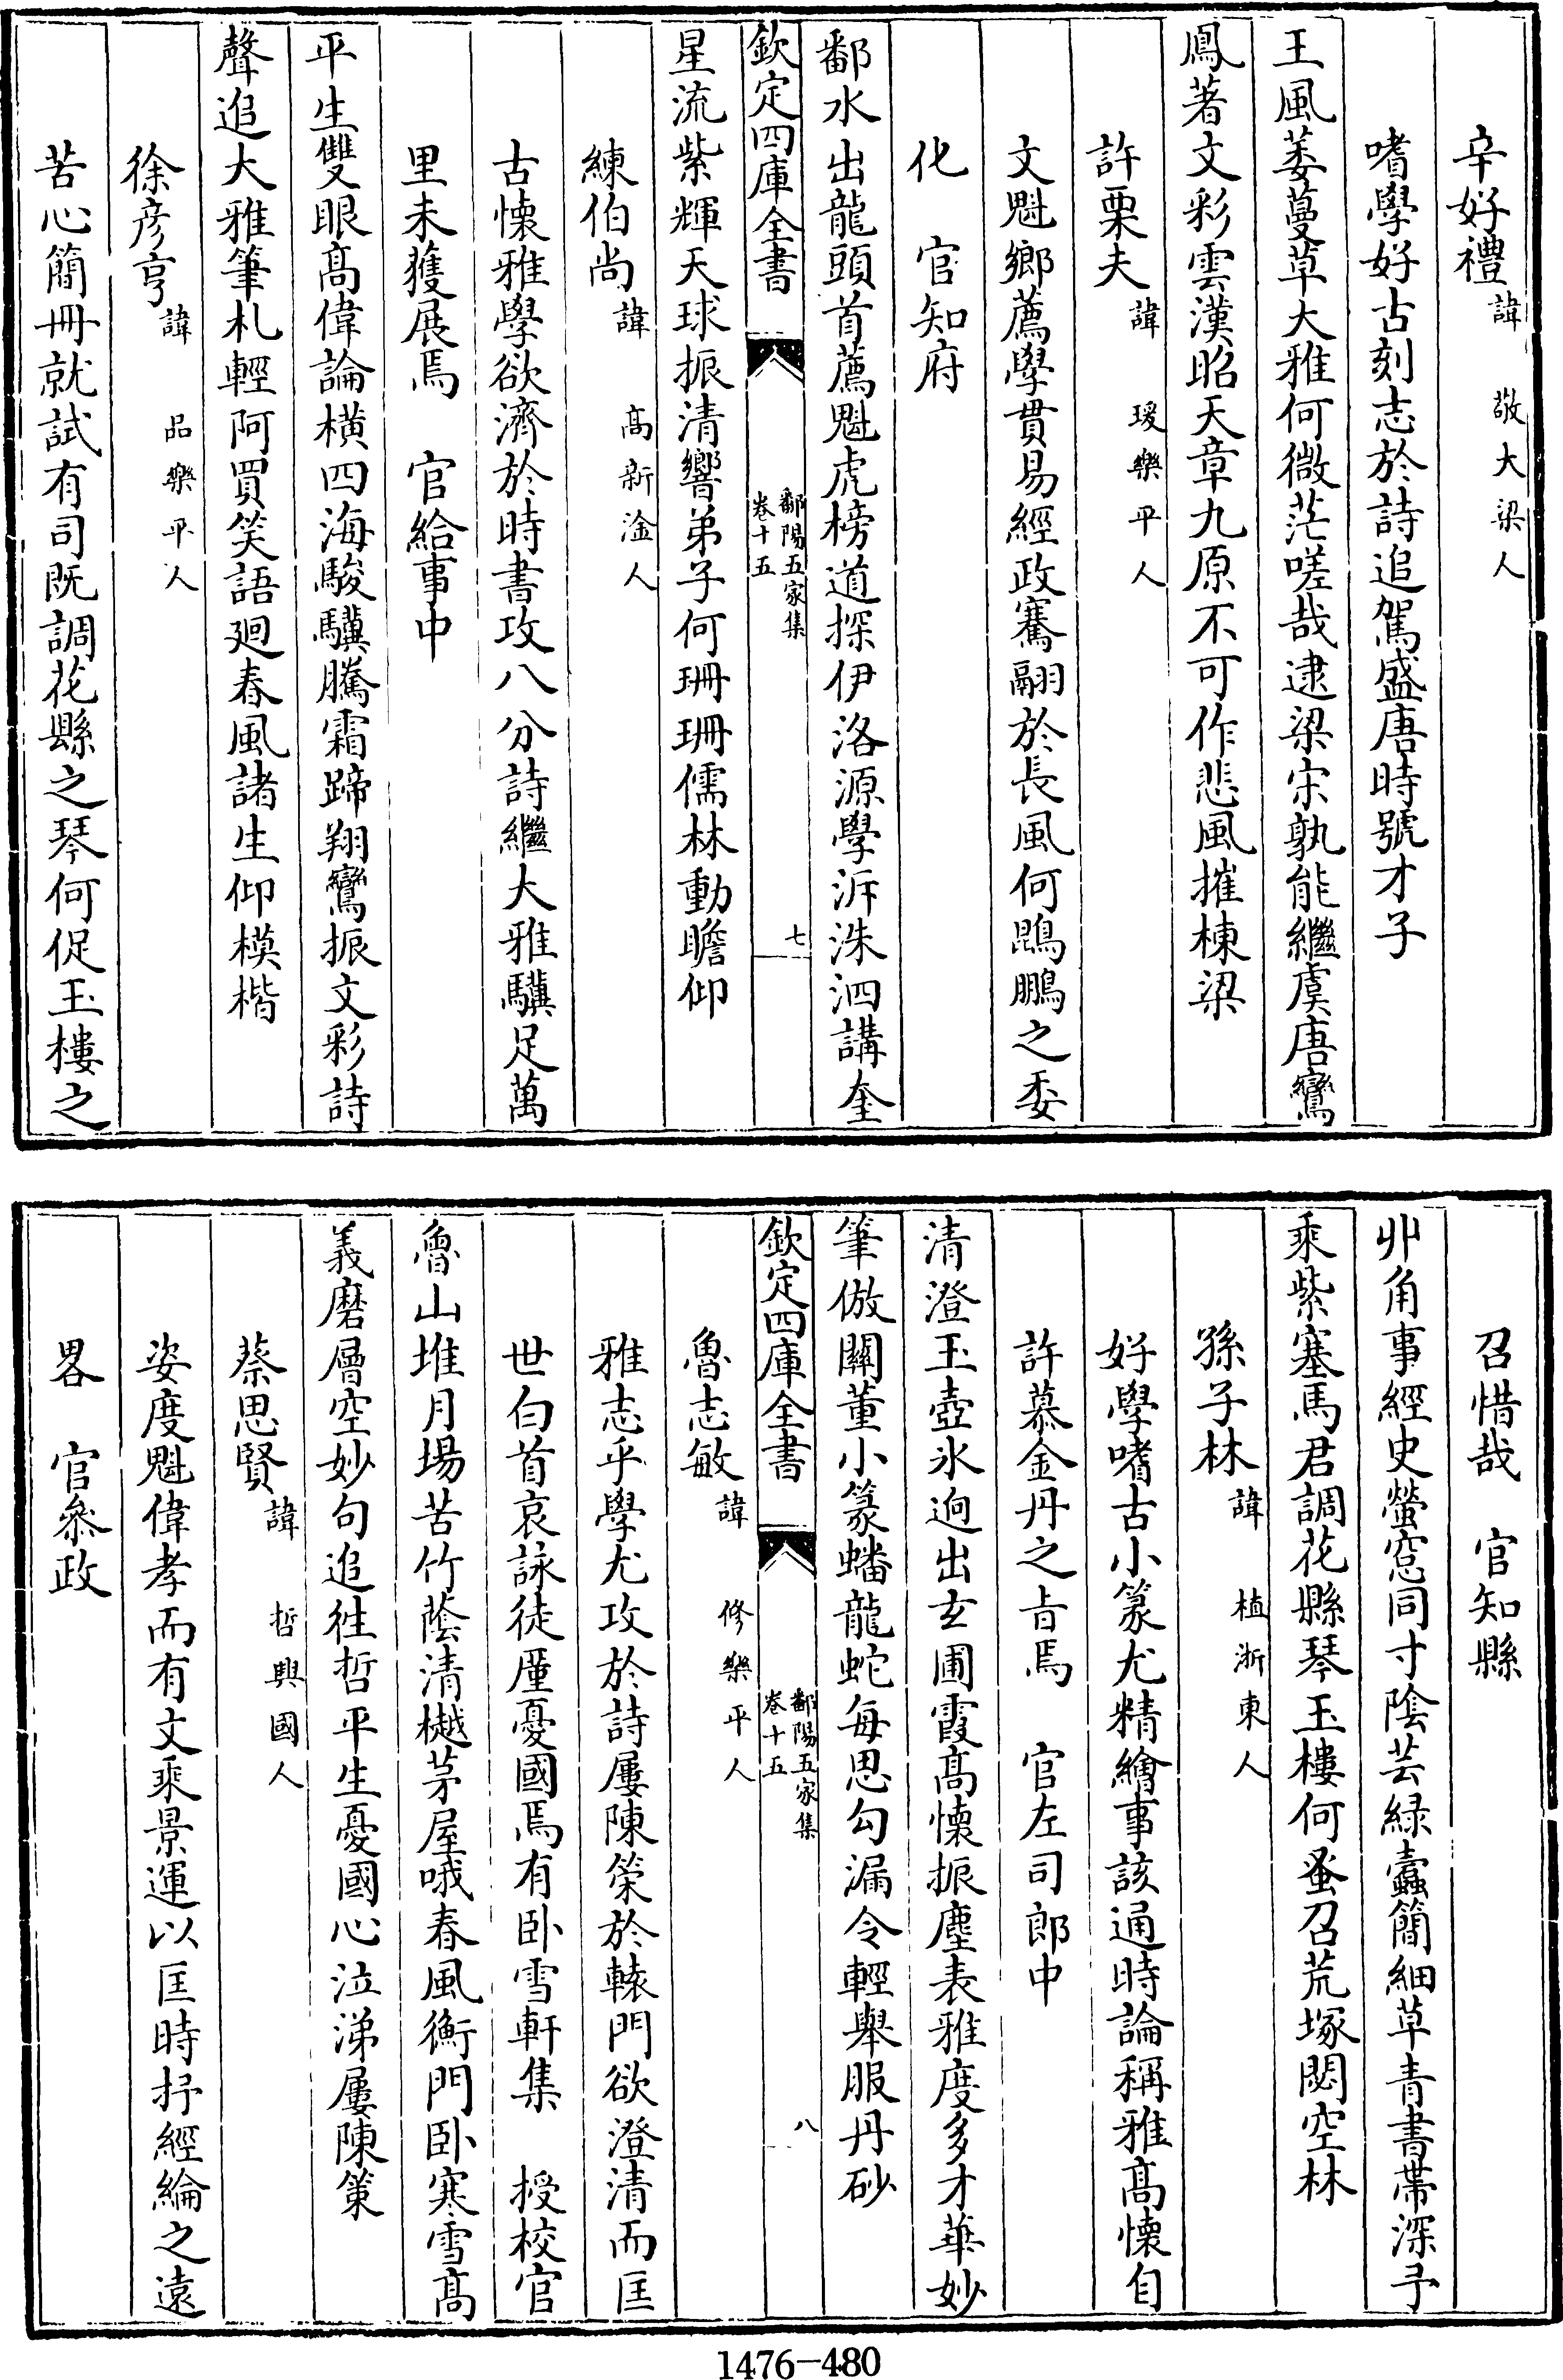 辛好禮諱敬大梁人
嗜學好古刻志於詩追駕盛唐時號才子
王風萎蔓草大雅何微茫嗟哉逮梁宋孰能繼虞唐鸞
鳳著文彩雲漢昭天章九原不可作悲風摧棟梁
許栗夫諱瑗樂平人
文魁鄉薦學貫易經政騫翮於長風何鵾鵬之委
化 官知府
鄱水出龍頭首薦魁虎榜道探伊洛源學泝洙泗講奎
欽定四庫全書 鄱陽五家集 卷十五 七
星流紫輝天球振清響弟子何珊珊儒林動瞻仰
練伯尚諱高新淦人
古懷雅學欲濟於時書攻八分詩繼大雅驥足萬
里未獲展焉 官給事中
平生雙眼高偉論橫四海駿驥騰霜蹄翔鸞振文彩詩
聲追大雅筆札輕阿買笑語廻春風諸生仰模楷
徐彦亨諱品樂平人
苦心簡冊就試有司既調花縣之琴何促玉樓之
召惜哉 官知縣
丱角事經史螢窓同寸陰芸緑蠧簡細草青書帶深予
乘紫塞馬君調花縣琴玉樓何蚤召荒塚閟空林
孫子林諱植浙東人
好學嗜古小篆尤精繪事該通時論稱雅高懷自
許慕金丹之㫖焉 官左司郎中
清澄玉壺氷逈出玄圃霞高懷振塵表雅度多才華妙
筆倣關董小篆蟠龍蛇每思勾漏令輕舉服丹砂
欽定四庫全書 鄱陽五家集 卷十五 八
魯志敏諱修樂平人
雅志乎學尤攻於詩屢陳榮於轅門欲澄清而匡
世白首哀詠徒厪憂國焉有卧雪軒集 授校官
魯山堆月場苦竹蔭清樾茅屋哦春風衡門卧寒雪高
義磨層空妙句追徃哲平生憂國心泣涕屢陳策
蔡思賢諱哲興國人
姿度魁偉孝而有文乘景運以匡時抒經綸之遠
畧 官叅政
1476-480